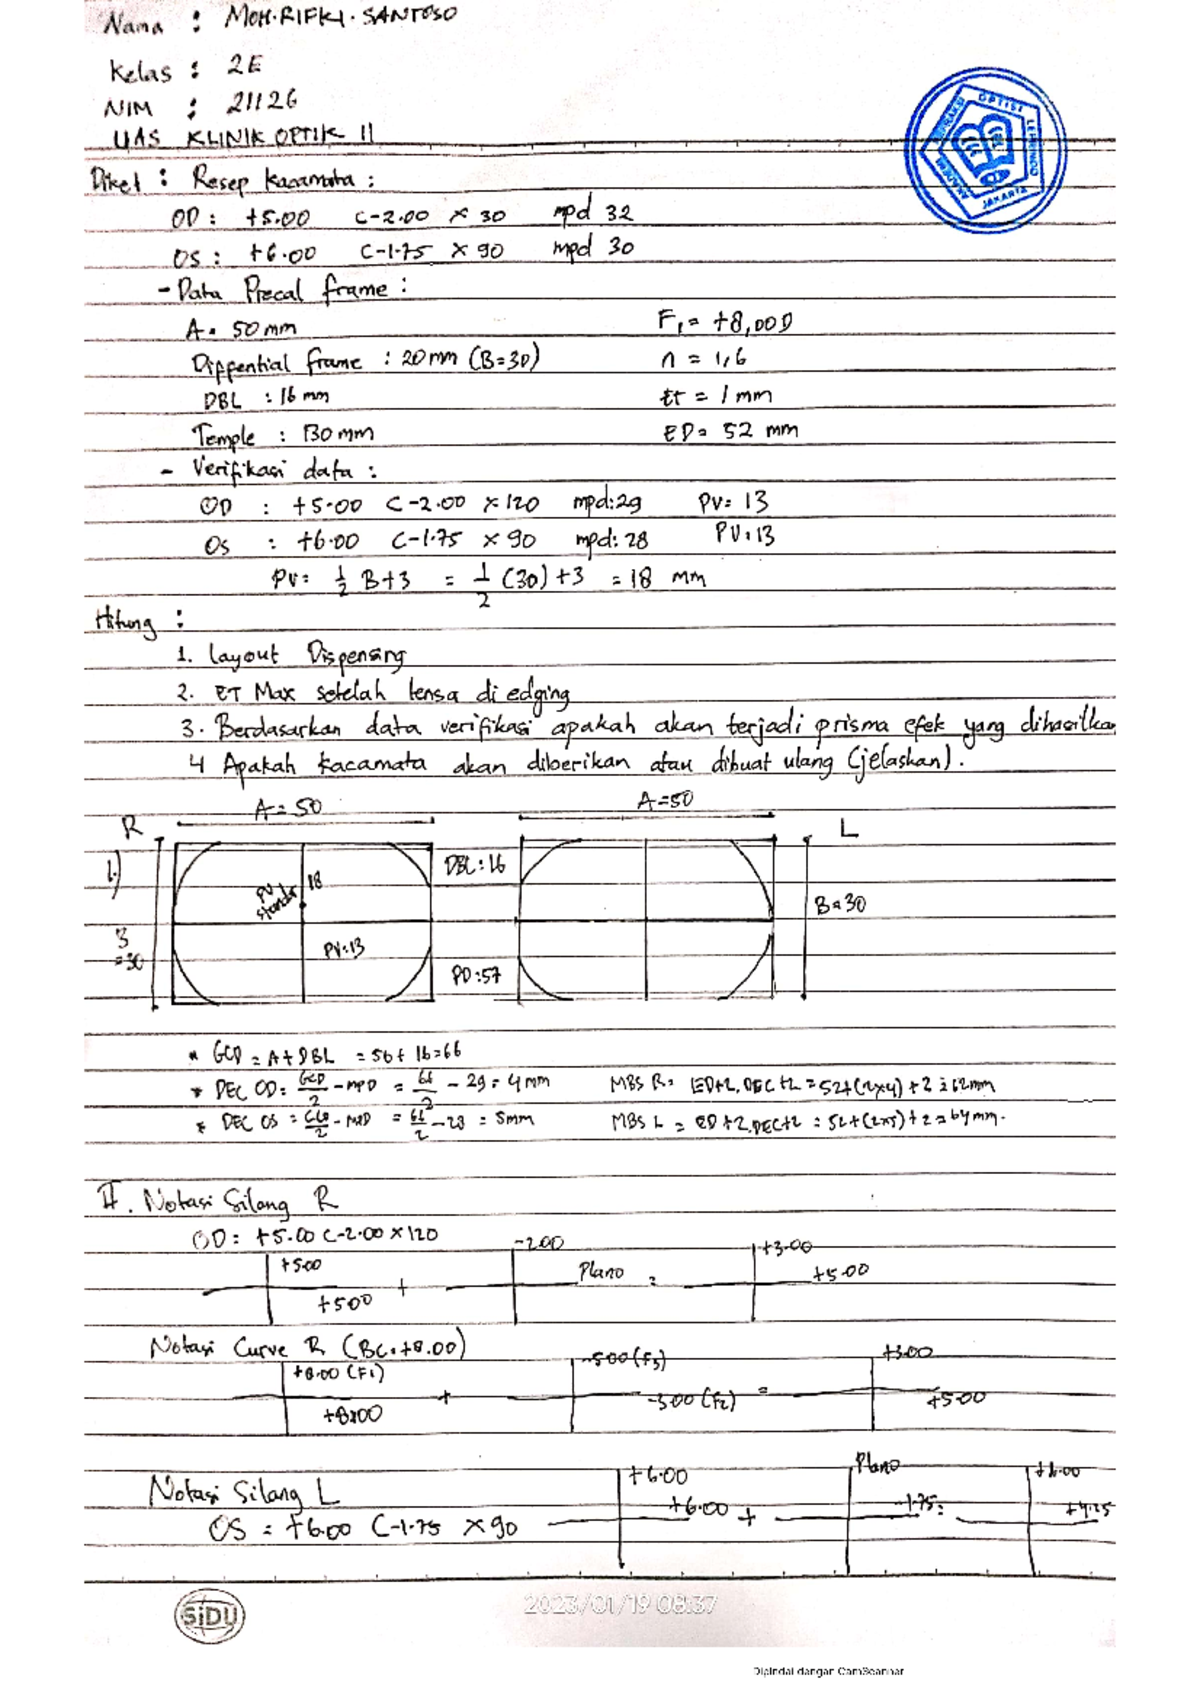 Nama : MOH.RIFKI.SANTOSO
Kelas : 2E
NIM : 21126
UAS KLINIK OPTIK II
AKADEMI REFRAKSI OPTISI LEPRINDO
JAKARTA
Diket : Resep Kacamata :
OD : +5.00 C-2.00 x 30 mpd 32
OS : +6.00 C-1.75 x 90 mpd 30
- Data Precal frame :
A = 50 mm F1 = +8,00 D
Diffential frame : 20 mm (B=30) n = 1,6
DBL : 16 mm tt = 1 mm
Temple : 130 mm ED = 52 mm
- Verifikasi data :
OD : +5.00 C-2.00 x 120 mpd:29 PV= 13
OS : +6.00 C-1.75 x 90 mpd: 28 PV:13
PV= 1/2 B+3 = 1/2 (30)+3 = 18 mm
Hitung :
1. Layout Dispensing
2. ET Max setelah lensa di edging
3. Berdasarkan data verifikasi apakah akan terjadi prisma efek yang dihasilkan
4 Apakah kacamata akan diberikan atau dibuat ulang (jelaskan).
A = 50 A=50
R L
1.) PV standar 18 DBL:16 B=30
B =30 PV:13 PD:57
* GCD = A+DBL = 50+16=66
* DEC OD: GCD/2 - MPD = 66/2 - 29 = 4mm MBS R= ED+2.DEC+2 = 52+(2x4)+2 = 62mm
* DEC OS = GCD/2 - MPD = 66/2 - 28 = 5mm MBS L = ED+2.DEC+2 = 52+(2x5)+2=64mm.
II. Notasi Silang R
OD: +5.00 C-2.00 x 120
+5.00 -2.00 +3.00
+5.00 + Plano = +5.00
Notasi Curve R (BC:+8.00)
+8.00 (F1) -5.00 (F3) +3.00
+8.00 + -3.00 (F2) = +5.00
Notasi Silang L +6.00 Plano +6.00
OS = +6.00 C-1.75 x 90 +6.00 + -1.75 = +4.25
SiDU
2023/01/19 08:37
Dipindai dengan CamScanner